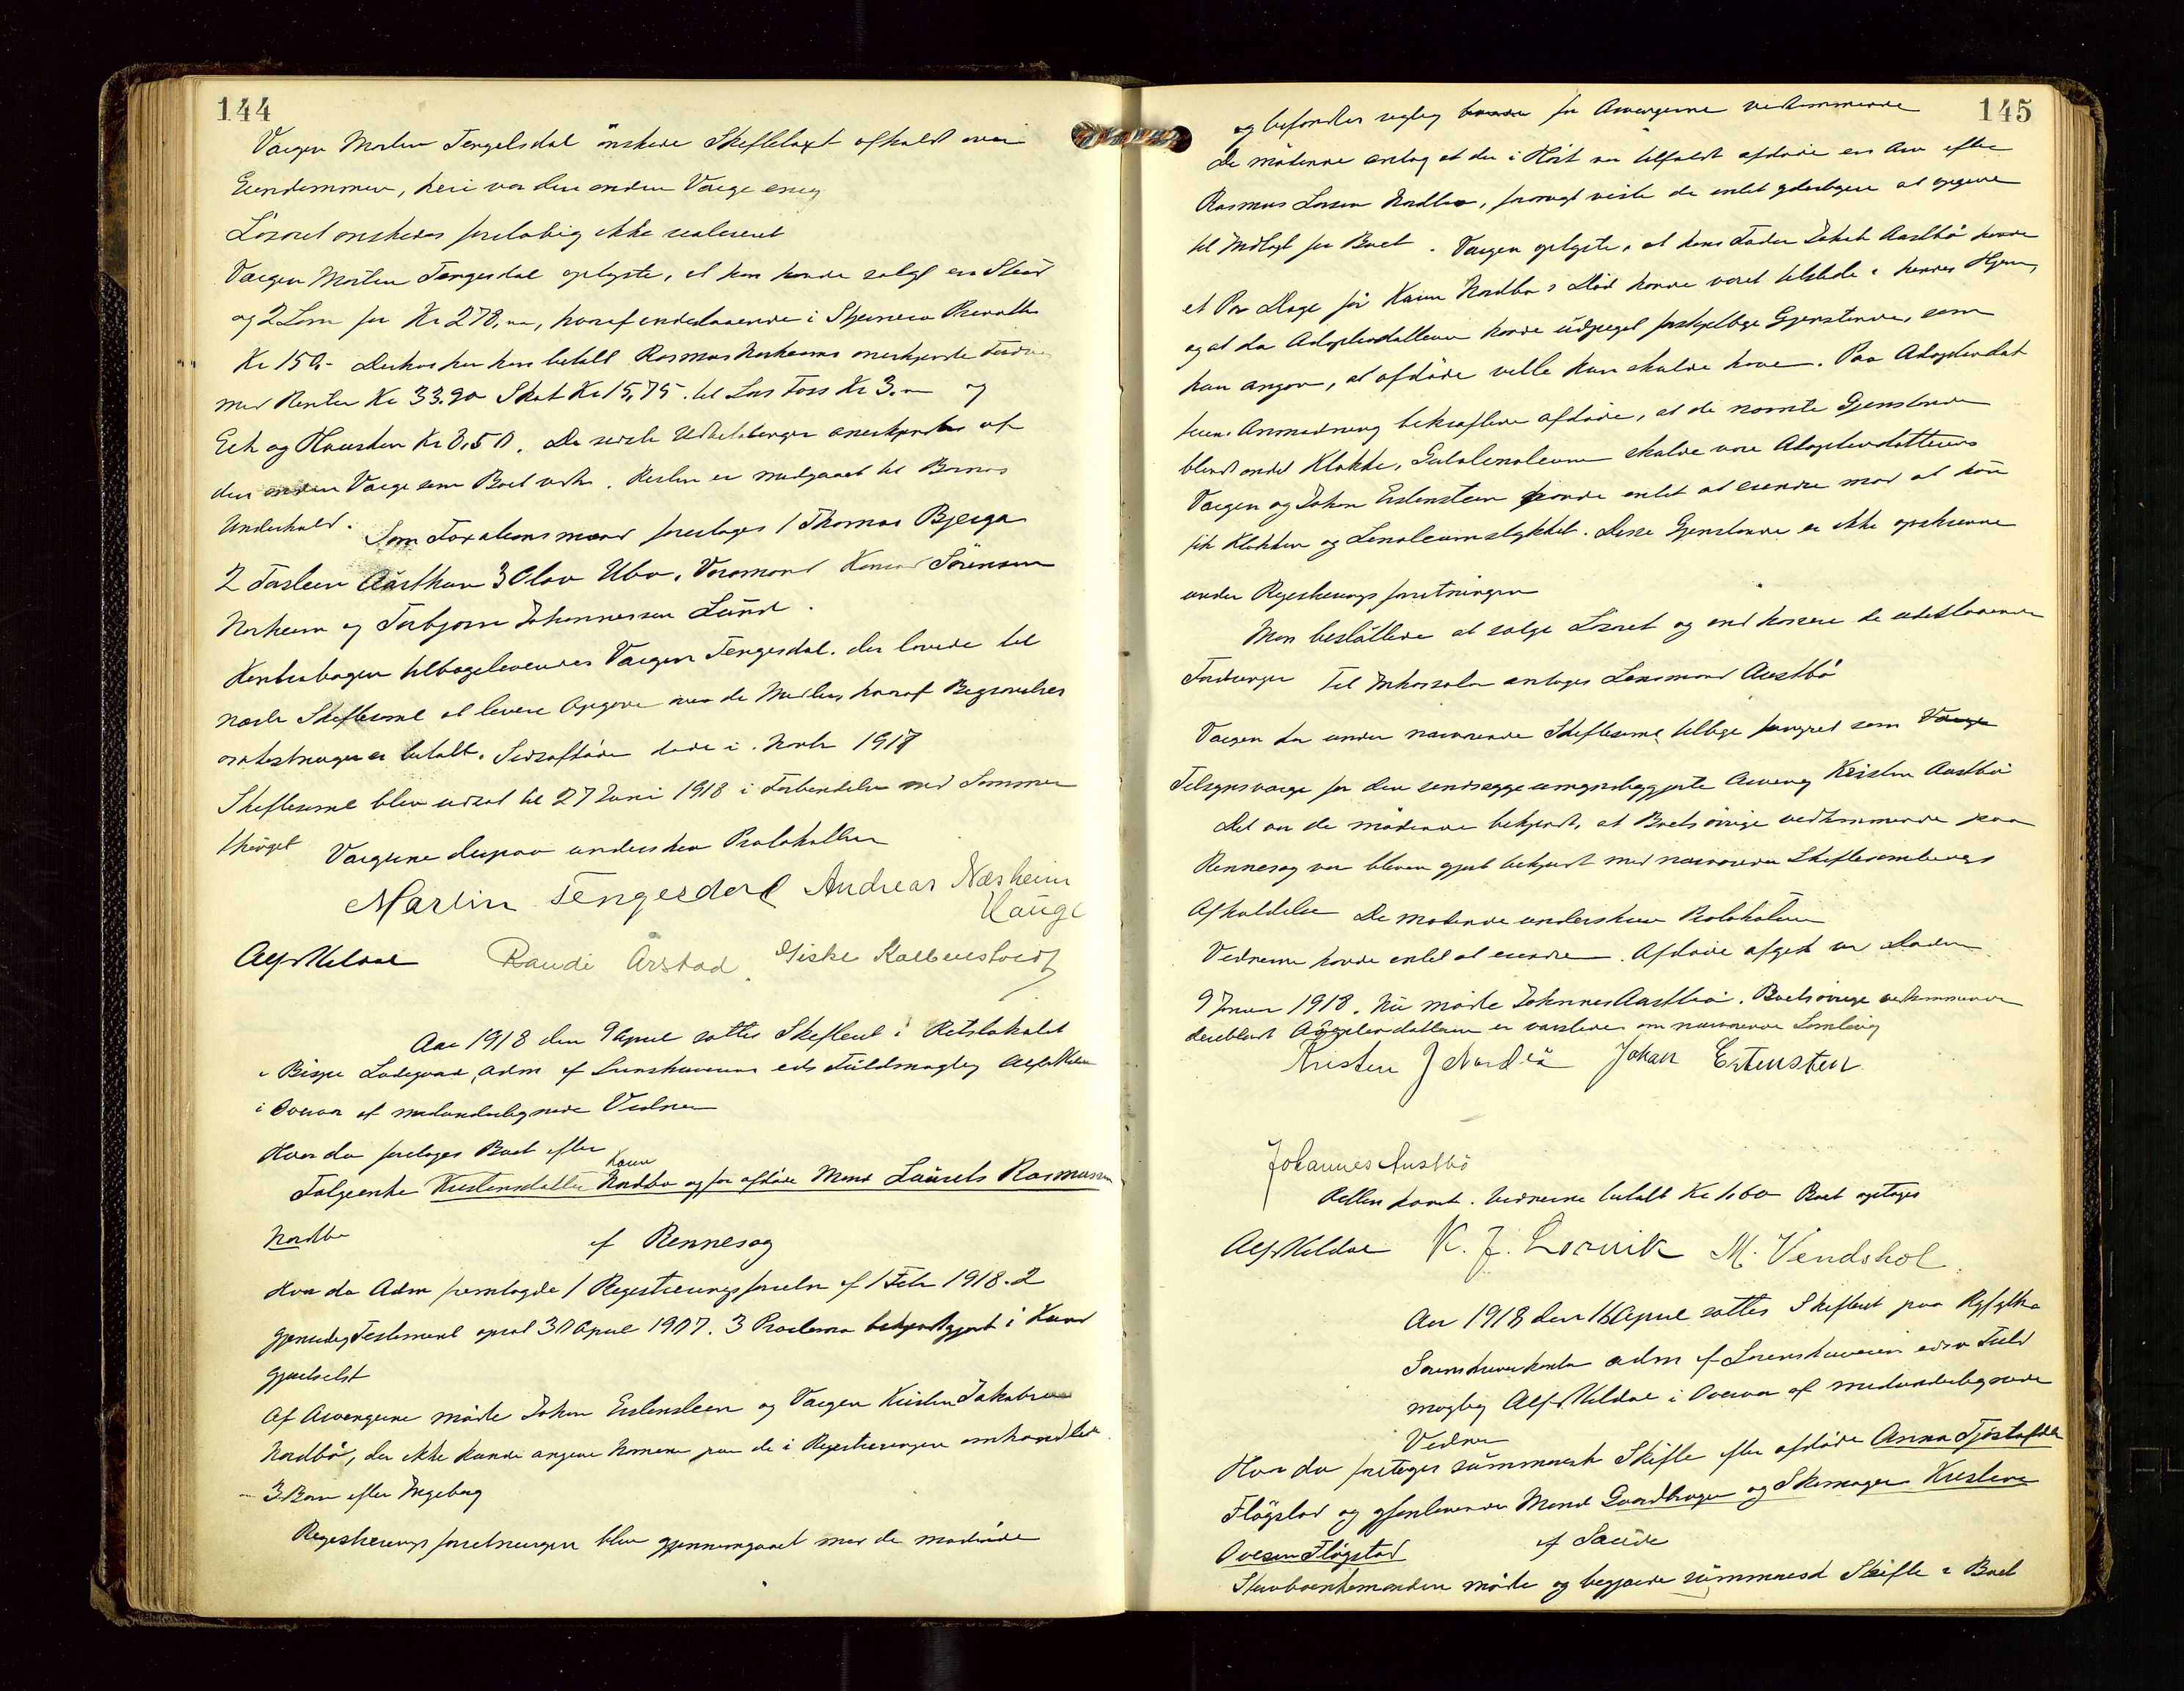 144
Værgen Martin Tengelsdal ønskede Skiftetaxt afholdt over
Eiendommen, heri var den anden Værge enig
Løsøret ønskedes foreløbig ikke realiseret
Værgen Martin Tengesdal oplyste, at han havde solgt en Stud
og 2 Lam for Kr 278,00, hvoraf indestaaende i Privatba
Kr 150,- Derhos har han betalt Rasmus Norheims anerkjendte Fordr
med Renter Kr 33.90 Skat Kr 15,75. til Lars Foss Kr 3.00 og
Eek og Hausken Kr 8,50. De sidste Udbetalinger anerkjendtes af
den anden Værge som Boet vedk. Resten er medgaaet til Barnas
Underhold. Som Taxationsmænd foresloges 1 Thomas Bjerga
2 Torleiv Aarthun 3 Olav Ubø. Varamænd Konrad Sørensen
Norheim og Torbjørn Johannessen Lund.
Kontrabogen tilbageleveredes Værgen Tengesdal. der lovede til
næste Skiftesaml at levere Opgave over de Midler, hvoraf Begravelses
omkostninger er betalt. Sidstafdøde døde i. Novbr 1917
Skiftesaml blev udsat til 27 Juni 1918 i Forbindelse med Sommer
thinget Værgerne derpaa underskrev Protokollen
Martin Tengesdal Andreas Næsheim
Hauge
Alf Kildal Raudi Årstad Giske
Aar 1918 den 9 April sattes Skifteret i Retslokalet
i Bispe Ladegaard, adm af Sorenskriveren eds Fuldmægtig Alf Kildal
i Overvær af medunderteguede Vidner
Hvor da foretoges Boet efter
Karen
Føderaadsenke Kristensdatter Nordbø og før afdøde Mand Laurits Rasmussen
Nordbø af Rennesøy
Hvor da Adm fremlagde 1 Registreringsforretn af 1 Feb 1918. 2
gjensidig Testament oprat 30 April 1907. 3 Proclama bekjendtgjort i Kund
gjørelsest
Af Arvingerne mødte Johan Eistensteen og Værgen Kristen Jakobsen
Nordbø, der ikke kunde angive Navnene paa de i Registreringen omhandlede
3 Børn efter Ingeborg
Registreringsforretningen blev gjennemgaaet med de mødende
145
og befandtes rigtig for Arvingerne vedkommende
De mødende antog at der i Høst var tilfaldt afdøde en Arv efter
Rasmus Larsen Nordbø, forøvrigt vidste de intet yderligere at opgive
til Indtægt for Boet. Værgen oplyste, at hans Fader Jakob Aastbø havde
et Par Dage før Karen Nordbøs Død havde været tilstede i hendes Hjem,
og at da Adoptivdatteren havde udpeget forskjellige Gjenstande, som
hun angav, at afdøde vilde hun skulde have. Paa Adoptivdat
terens Anmodning bekræftede afdøde, at de nævnte Gjenstande
blandt andet Klokke, Gulvlinoleum skulde være Adoptivdatterens
Værgen og Johan Eistensteen havde intet at erindre mod at hun
fik Klokken og Linoleumstykket. Disse Gjenstande er ikke opskrevne
under Registreringsforretningen
Man besluttede at sælge Løsøret og indkassere de udestaaende
Fordringer Til Inkassator antoges Lensmand Austbø
Værgen har under nærværende Skiftesaml. tillige fungeret som Værge
Tilsynsværge for den umyndiggjorte Arving Kristen Aastbø
Det var de mødende bekjendt, at Boets øvrige vedkommende paa
Rennesøy var bleven gjort bekjendt med nærværende Skiftesamlings
Afholdelse De mødende underskrev Protokollen
Vidnerne havde intet at erindre. Afdøde afgik ved Døden
9 Januar 1918. Nu mødte Johannes Aastbø. Boets øvrige vedkommende
deriblandt Adoptivdatteren er varslede om nærværende Samling
Kristen J Nordbø Johan Estensten
Johannes Austbø
Retten hævet. Vidnerne betalt Kr 1.60 Boet optages
Alf Kildal K. J. Lervik M. Vendshol
Aar 1918 den 16 April sattes Skifteret paa Ryfylke
Sorenskriverkontor adm af Sorenskriveren eds Fuld
mægtig Alf Kildal i Overvær af medunderteguede
Vidner
Hvor da foretoges summarisk Skifte efter afdøde Anna Tjøstolfsdtr
Fløgstad og gjenlevende Mand Gaardbruger og Skomager Kristen
Ovesen Fløgstad af Saude
Stervboenkemanden mødte og begjærede summarisk Skifte i Boet